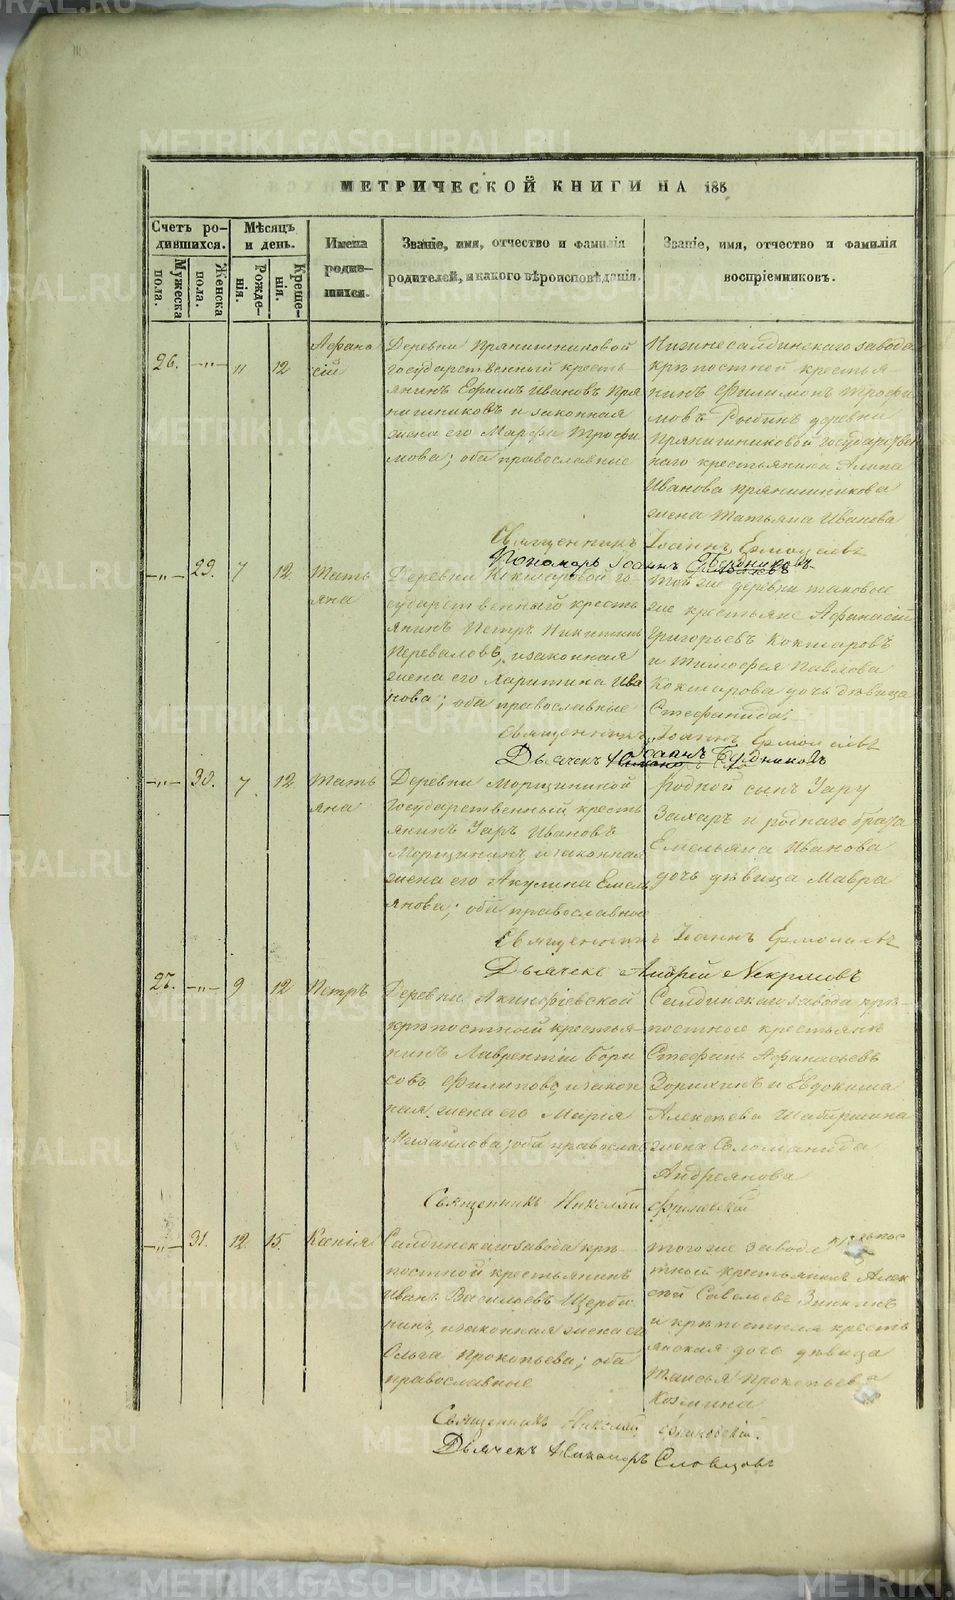 МЕТРИЧЕСКОЙ КНИГИ НА 185
Счетъ ро-
дившихся.
Мѣсяцъ
и день.
Имена
родив-
шихся.
Званіе, имя, отчество и фамилія
родителей, и какого вѣроисповѣданія.
Званіе, имя, отчество и фамилія
воспріемниковъ.
Мужеска
пола.
Женска
пола.
Рожде-
нія.
Креще-
нія.
26. —„— 11 12
Афана
сій
Деревни Прянишниковой
государственный кресть-
янинъ Ефимъ Ивановъ Пря
нишниковъ и законная
жена его Марфа Трофи
мова; оба православные
Нижнесалдинскаго завода
крѣпостной крестья-
нинъ Филимонъ Трофи
мовъ и деревни
Прянишниковой государствен
наго крестьянина
Иванова Прянишникова
жена Татьяна Иванова
Священникъ Іоаннъ Ермолаевъ
Пономарь Іоаннъ Будниковъ
—„— 29. 7 12
Тать
яна
Деревни Кокшаровой го-
сударственный кресть
янинъ Петръ Никитинъ
Переваловъ, и законная
жена его Харитина Ива
нова; оба православные
Той же деревни таковые
же крестьяне Афанасій
Григорьевъ Кокшаровъ
и Тимофея Павлова
Кокшарова дочь дѣвица
Стефанида.
Священникъ Іоаннъ Ермолаевъ
Дьячекъ Іоаннъ Будниковъ
—„— 30. 7. 12
Тать
яна
Деревни Морщининой
государственный кресть
янинъ Уаръ Ивановъ
Морщининъ и законная
жена его Акулина Емель
янова; оба православное
Родной сынъ Уару
Захаръ и роднаго брата
Емельяна Иванова
дочь дѣвица Мавра
Священникъ Іоаннъ Ермолаевъ
Дьячекъ Андрей Некрасовъ
27. —„— 9 12
Петръ
Деревни Акинфіевской
крѣпостной крестья-
нинъ Лаврентій Бори
совъ Филиповъ, и закон
ная жена его Марія
Михайлова; оба православ
Салдинскаго завода крѣ-
постные крестьяне
Стефанъ Афанасьевъ
Зорихинъ и Евдокима
Алексѣева
жена Соломанида
Андреянова
Священникъ Николай
—„— 31. 12 15.
Ксенія
Салдинскаго завода крѣ-
постной крестьянинъ
Иванъ Васильевъ Щерба
нинъ, и законная жена его
Ольга Прокопьева; оба
православные
Того же завода крѣпос
тный крестьянинъ Алек
сѣй Савельевъ Зинкинъ
и крѣпостная кресть
янская дочь дѣвица
Таисья Прокопьева
Козмина
Священникъ Николай
Дьячекъ Никаноръ Словцовъ